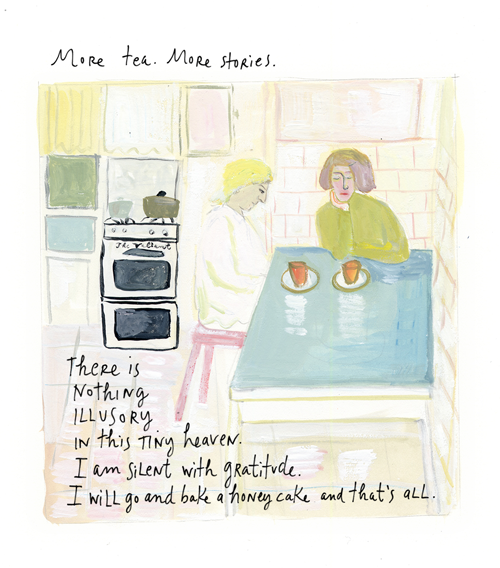 More tea. More stories.
There is
Nothing
ILLUSORY
in this Tiny heaven.
I am silent with gratitude.
I will go and bake a honey cake and that's all.